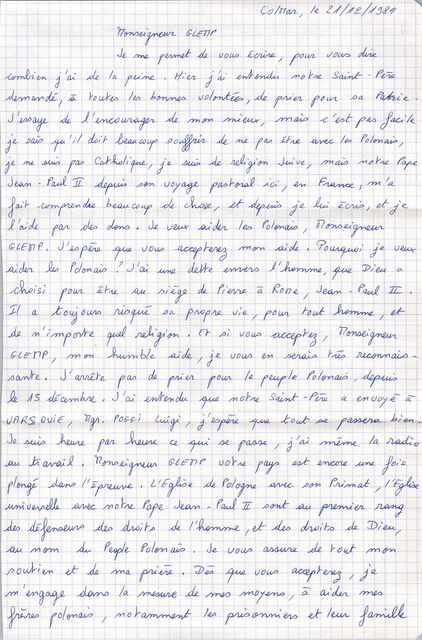 Colmar, le 21/12/1981
Monseigneur GLEMP
Je me permet de vous écrire, pour vous dire
combien j'ai de la peine. Hier j'ai entendu notre Saint-Père
demandé, à toutes les bonnes volontées, de prier pour sa Patrie.
J'essaye de l'encourager de mon mieux, mais c'est pas facile
je sais qu'il doit beaucoup souffrir de ne pas être avec les Polonais,
je ne suis pas Catholique, je suis de religion Juive, mais notre Pape
Jean-Paul II depuis son voyage pastoral ici, en France, m'a
fait comprendre beaucoup de chose, et depuis je lui écris, et je
l'aide par des dons. Je veux aider les Polonais, Monseigneur
GLEMP. J'espère que vous accepterez mon aide. Pourquoi je veux
aider les Polonais ? J'ai une dette envers l'homme, que Dieu a
choisi pour être au siège de Pierre à Rome, Jean-Paul II.
Il a toujours risqué sa propre vie, pour tout homme, et
de n'importe quel religion. Et si vous acceptez, Monseigneur
GLEMP, mon humble aide, je vous en serais très reconnais-
sante. J'arrête pas de prier pour le peuple Polonais, depuis
le 13 décembre. J'ai entendu que notre Saint-Père a envoyé à
VARSOVIE, Mgr. POGGI Luigi, j'espère que tout se passera bien.
Je suis heure par heure ce qui se passe, j'ai même la radio
au travail. Monseigneur GLEMP votre pays est encore une fois
plongé dans l'épreuve. L'Eglise de Pologne avec son Primat, l'Eglise
universelle avec notre Pape Jean-Paul II sont au premier rang
des défenseurs des droits de l'homme, et des droits de Dieu,
au nom du Peuple Polonais. Je vous assure de tout mon
soutien et de ma prière. Dès que vous accepterez, je
m'engage dans la mesure de mes moyens, à aider mes
frères polonais, notamment les prisonniers et leur famille